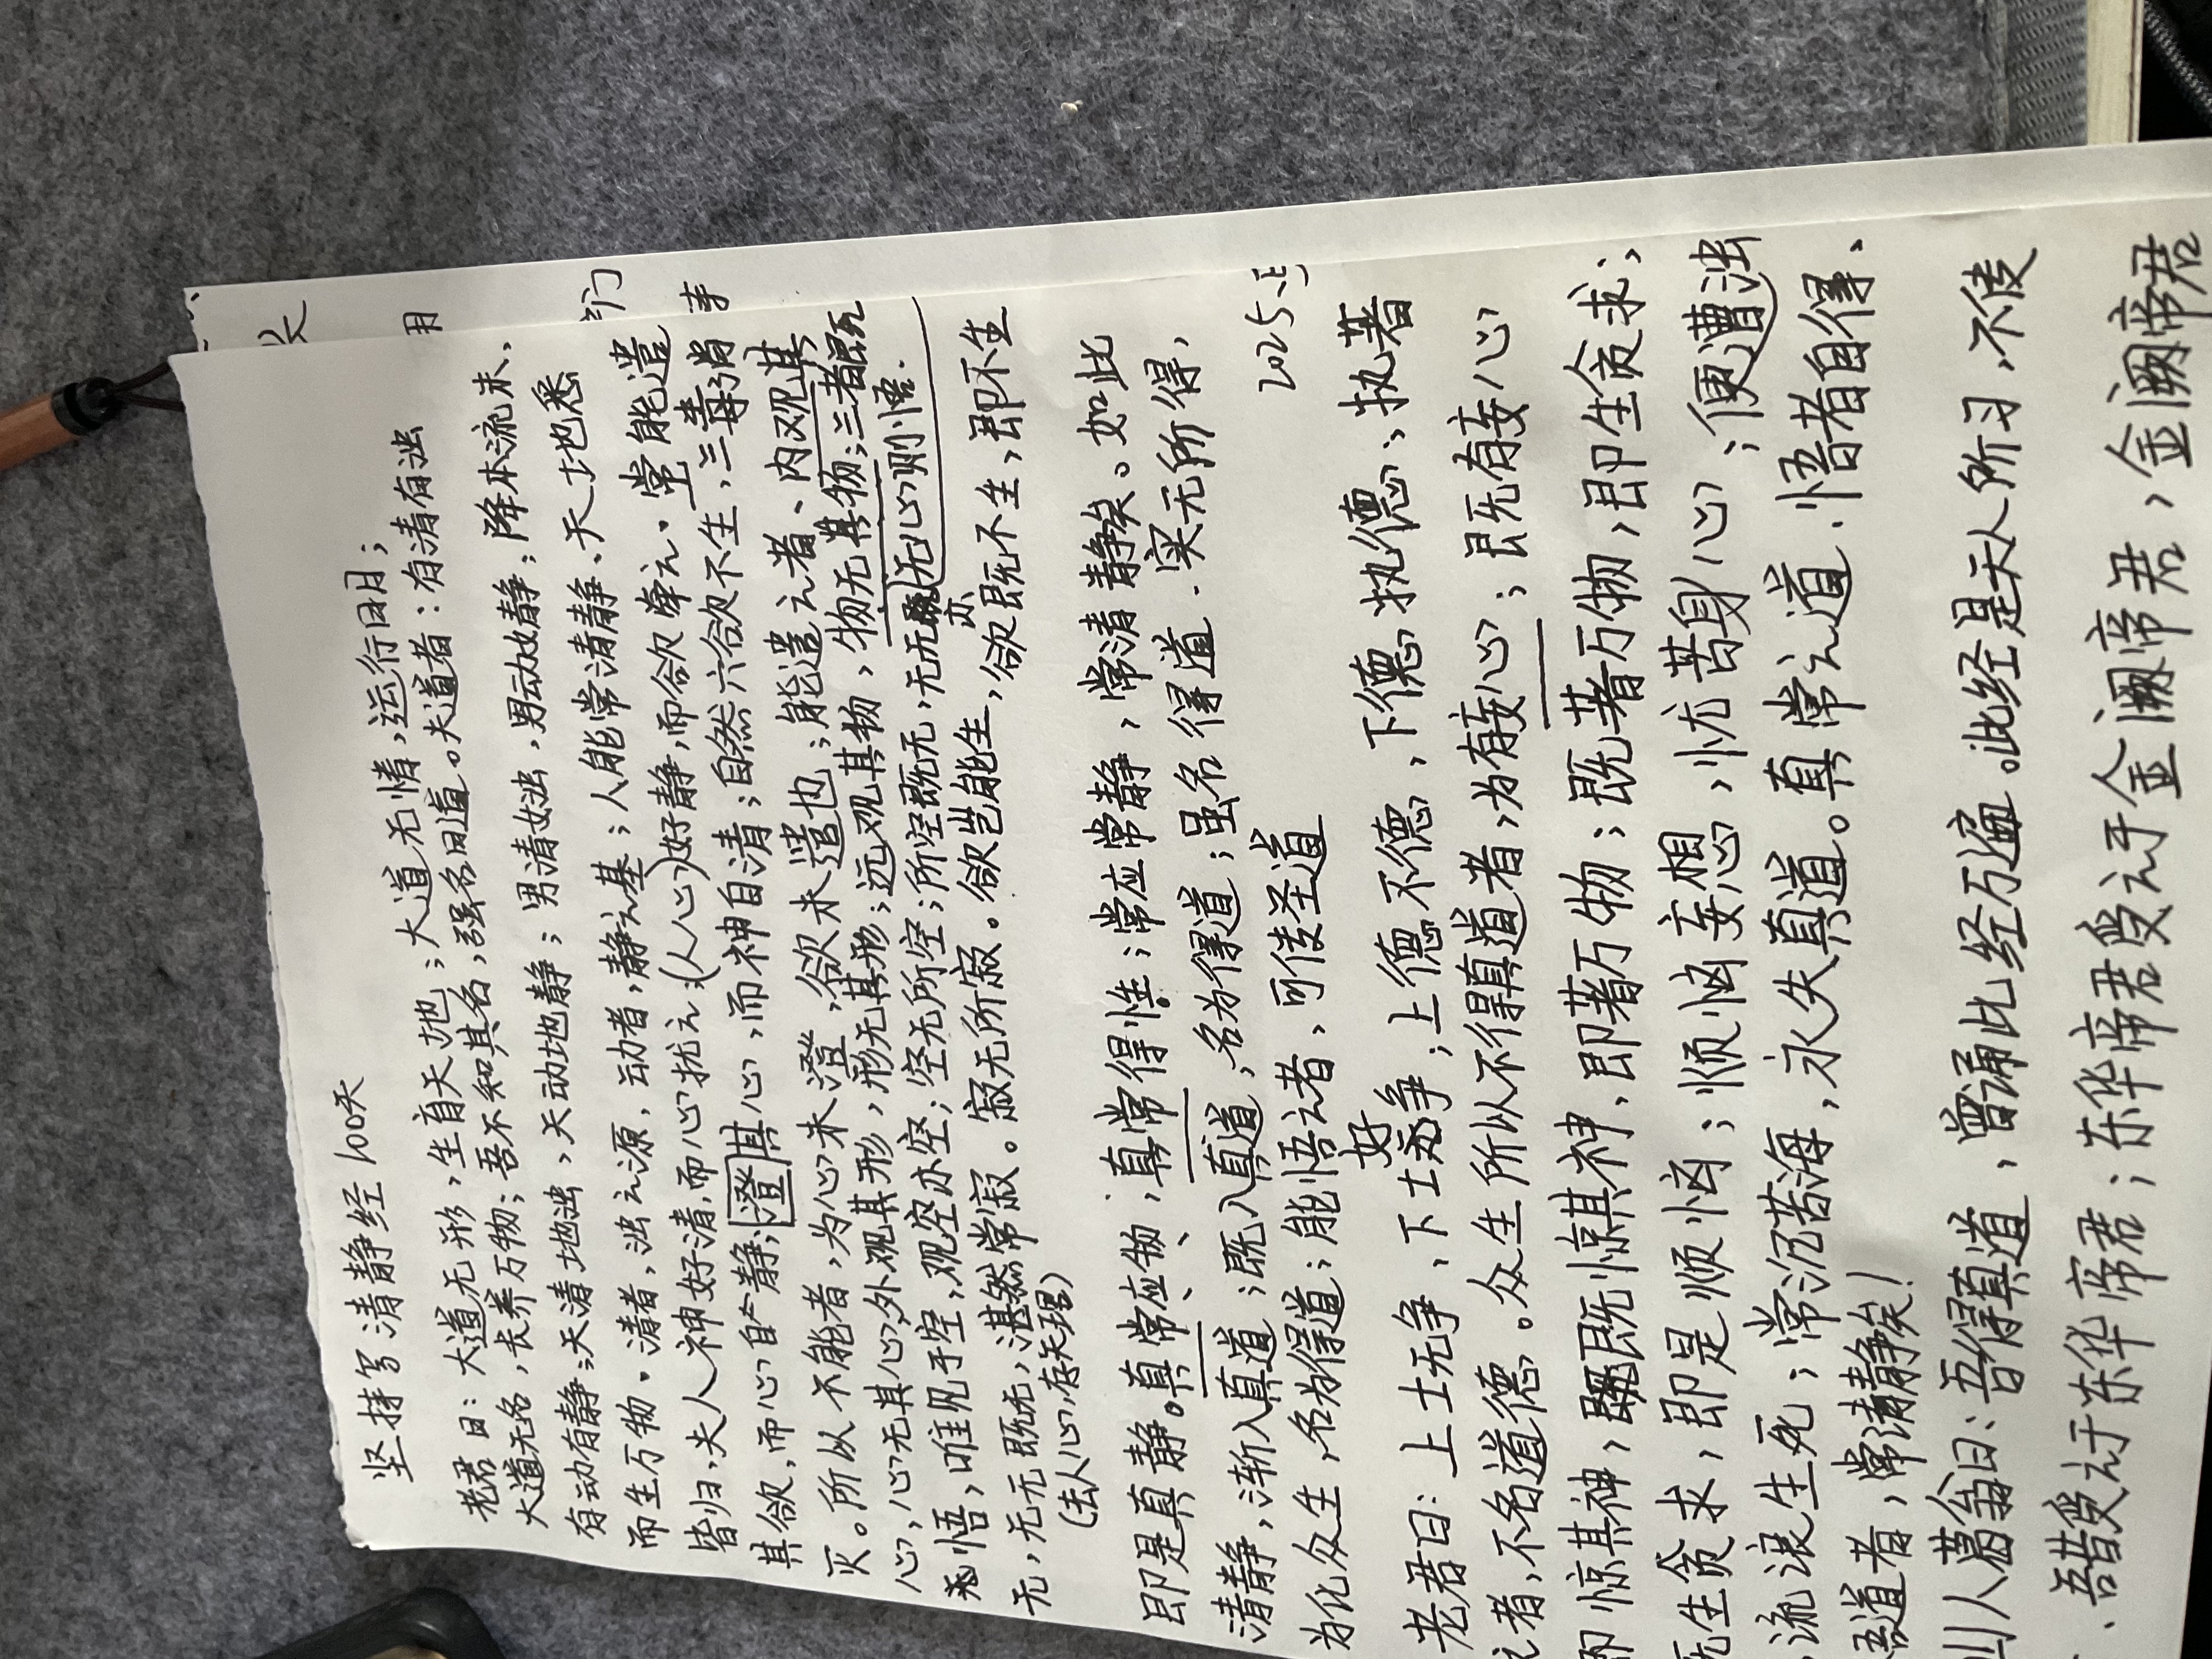 坚持写清静经100天
老君曰：大道无形，生育天地；大道无情，运行日月；
大道无名，长养万物；吾不知其名，强名曰道。夫道者：有清有浊
有动有静；天清地浊，天动地静；男清女浊，男动女静；降本流末、
而生万物。清者，浊之源，动者，静之基；人能常清静、天地悉
皆归，夫人神好清，而心扰之（人心）好静，而欲牵之。常能遣
其欲，而心自静，澄其心，而神自清；自然六欲不生，三毒消
灭。所以不能者，为心未澄，欲未遣也；能遣之者、内观其
心，心无其心；外观其形，形无其形；远观其物，物无其物；三者既
无悟，唯见于空，观空亦空；空无所空；所空既无，无无亦无心则悟.
无，无无既无，湛然常寂。寂无所寂。欲岂能生，欲既不生，即不生
（去人心，存天理）
即是真静。真常应物，真常得性；常应常静，常清静矣。如此
清静，渐入真道；既入真道，名为得道；虽名得道．实无所得，
为化众生，名为得道；能悟之者，可传圣道
2025.
老君曰：上士无争，下士好争；上德不德，下德执德、执著
之者，不名道德。众生所以不得真道者，为有妄心；既有妄心
即惊其神，既惊其神、即著万物；既著万物，即生贪求；
既生贪求，即是烦恼；烦恼妄想，忧苦身心；便遭浊
流浪生死；常沉苦海，永失真道。真常之道、悟者自得、
悟道者，常清静矣！
山人葛翁曰：吾得真道，曾诵此经万遍。此经是天人所习．不传
吾昔受之于东华帝君；东华帝君受之于金阙帝君，金阙帝君